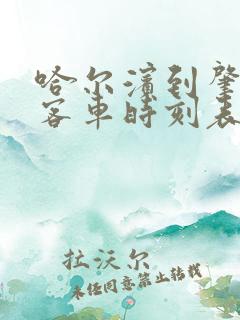 哈尔滨到肇
客车时刻表
拉沃尔
未经同意禁止转载